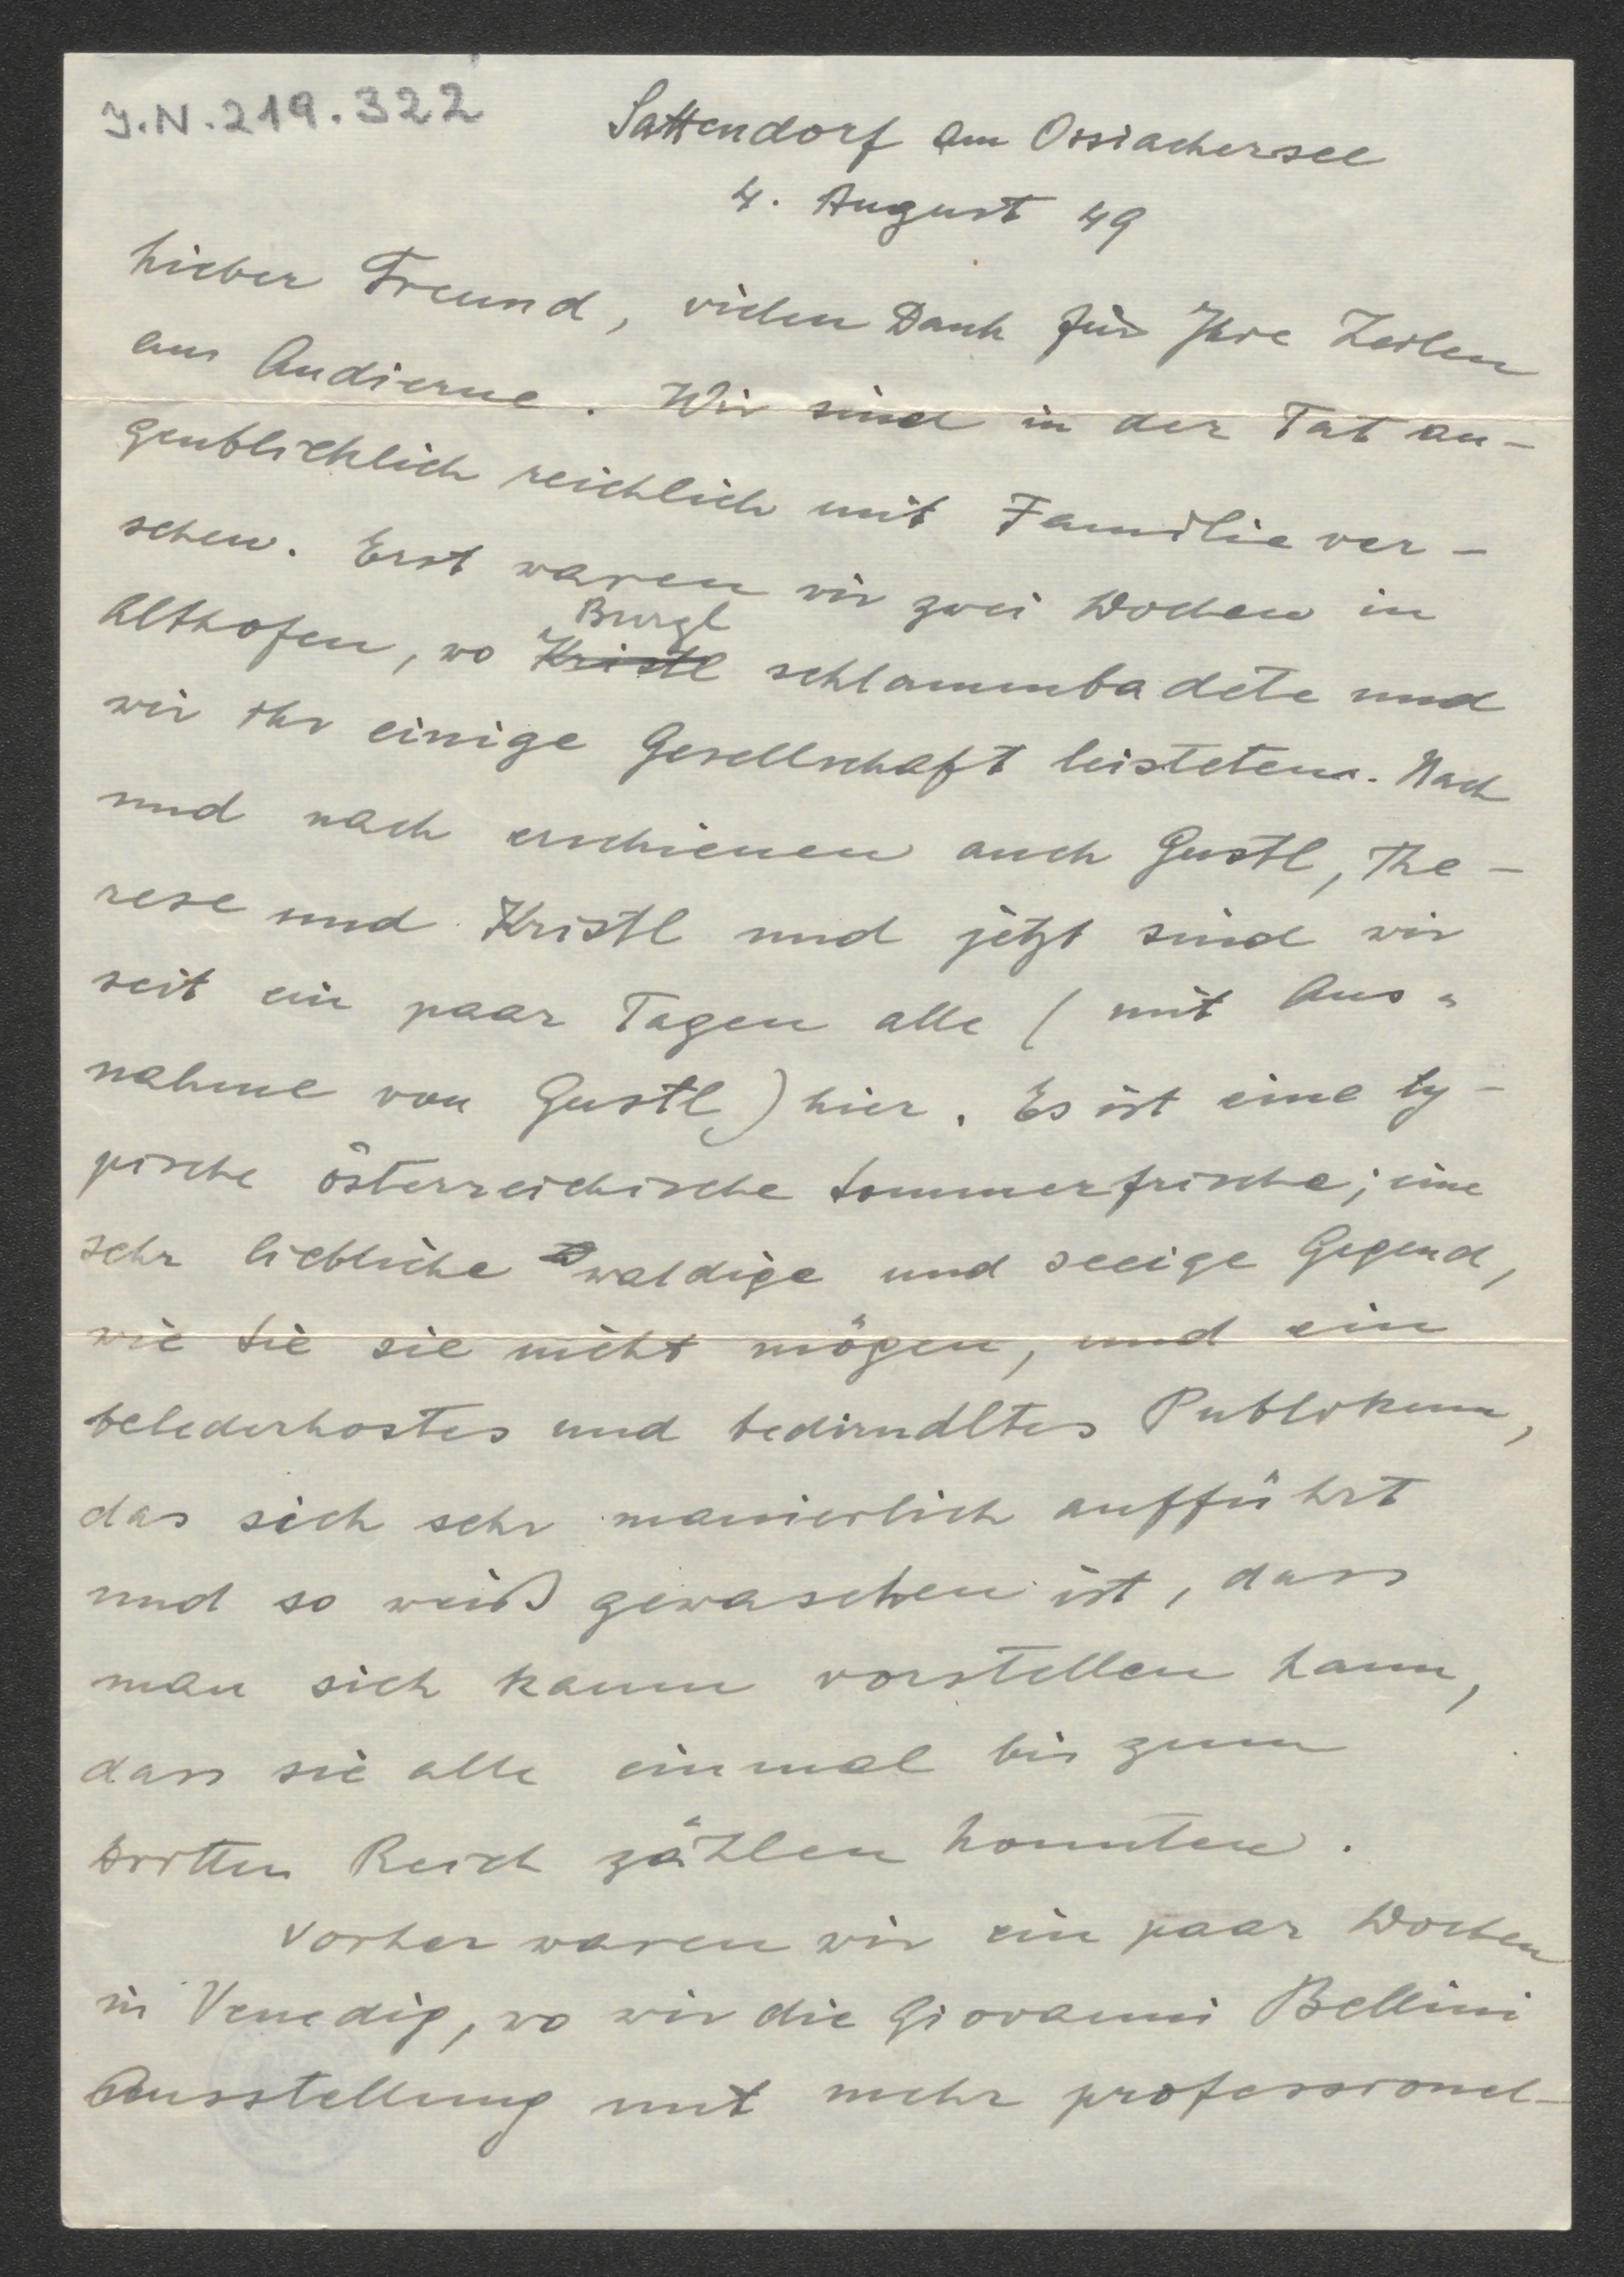 J.N.219.322
Sattendorf am Ossiachersee
4. August 49
Lieber Freund, vielen Dank für Ihre Zeilen
aus Audierne. Wir sind in der Tat au-
genblicklich reichlich mit Familie ver-
sehen. Erst waren wir zwei Wochen in
Burgl
Althofen, wo Kristl schlammbadete und
wir ihr einige Gesellschaft leisteten. Nach
und nach erschienen auch Gustl, The-
rese und Kristl und jetzt sind wir
seit ein paar Tagen alle (mit Aus-
nahme von Gustl) hier. Es ist eine ty-
pische österreichische Sommerfrische; eine
sehr liebliche waldige und seeige Gegend,
wie Sie sie nicht mögen, und ein
belederhostes und bedirndltes Publikum,
das sich sehr manierlich aufführt
und so weiß gewaschen ist, dass
man sich kaum vorstellen kann,
dass sie alle einmal bis zum
dritten Reich zählen konnten.
Vorher waren wir ein paar Wochen
in Venedig, wo wir die Giovanni Bellini
Ausstellung mit mehr professionel-